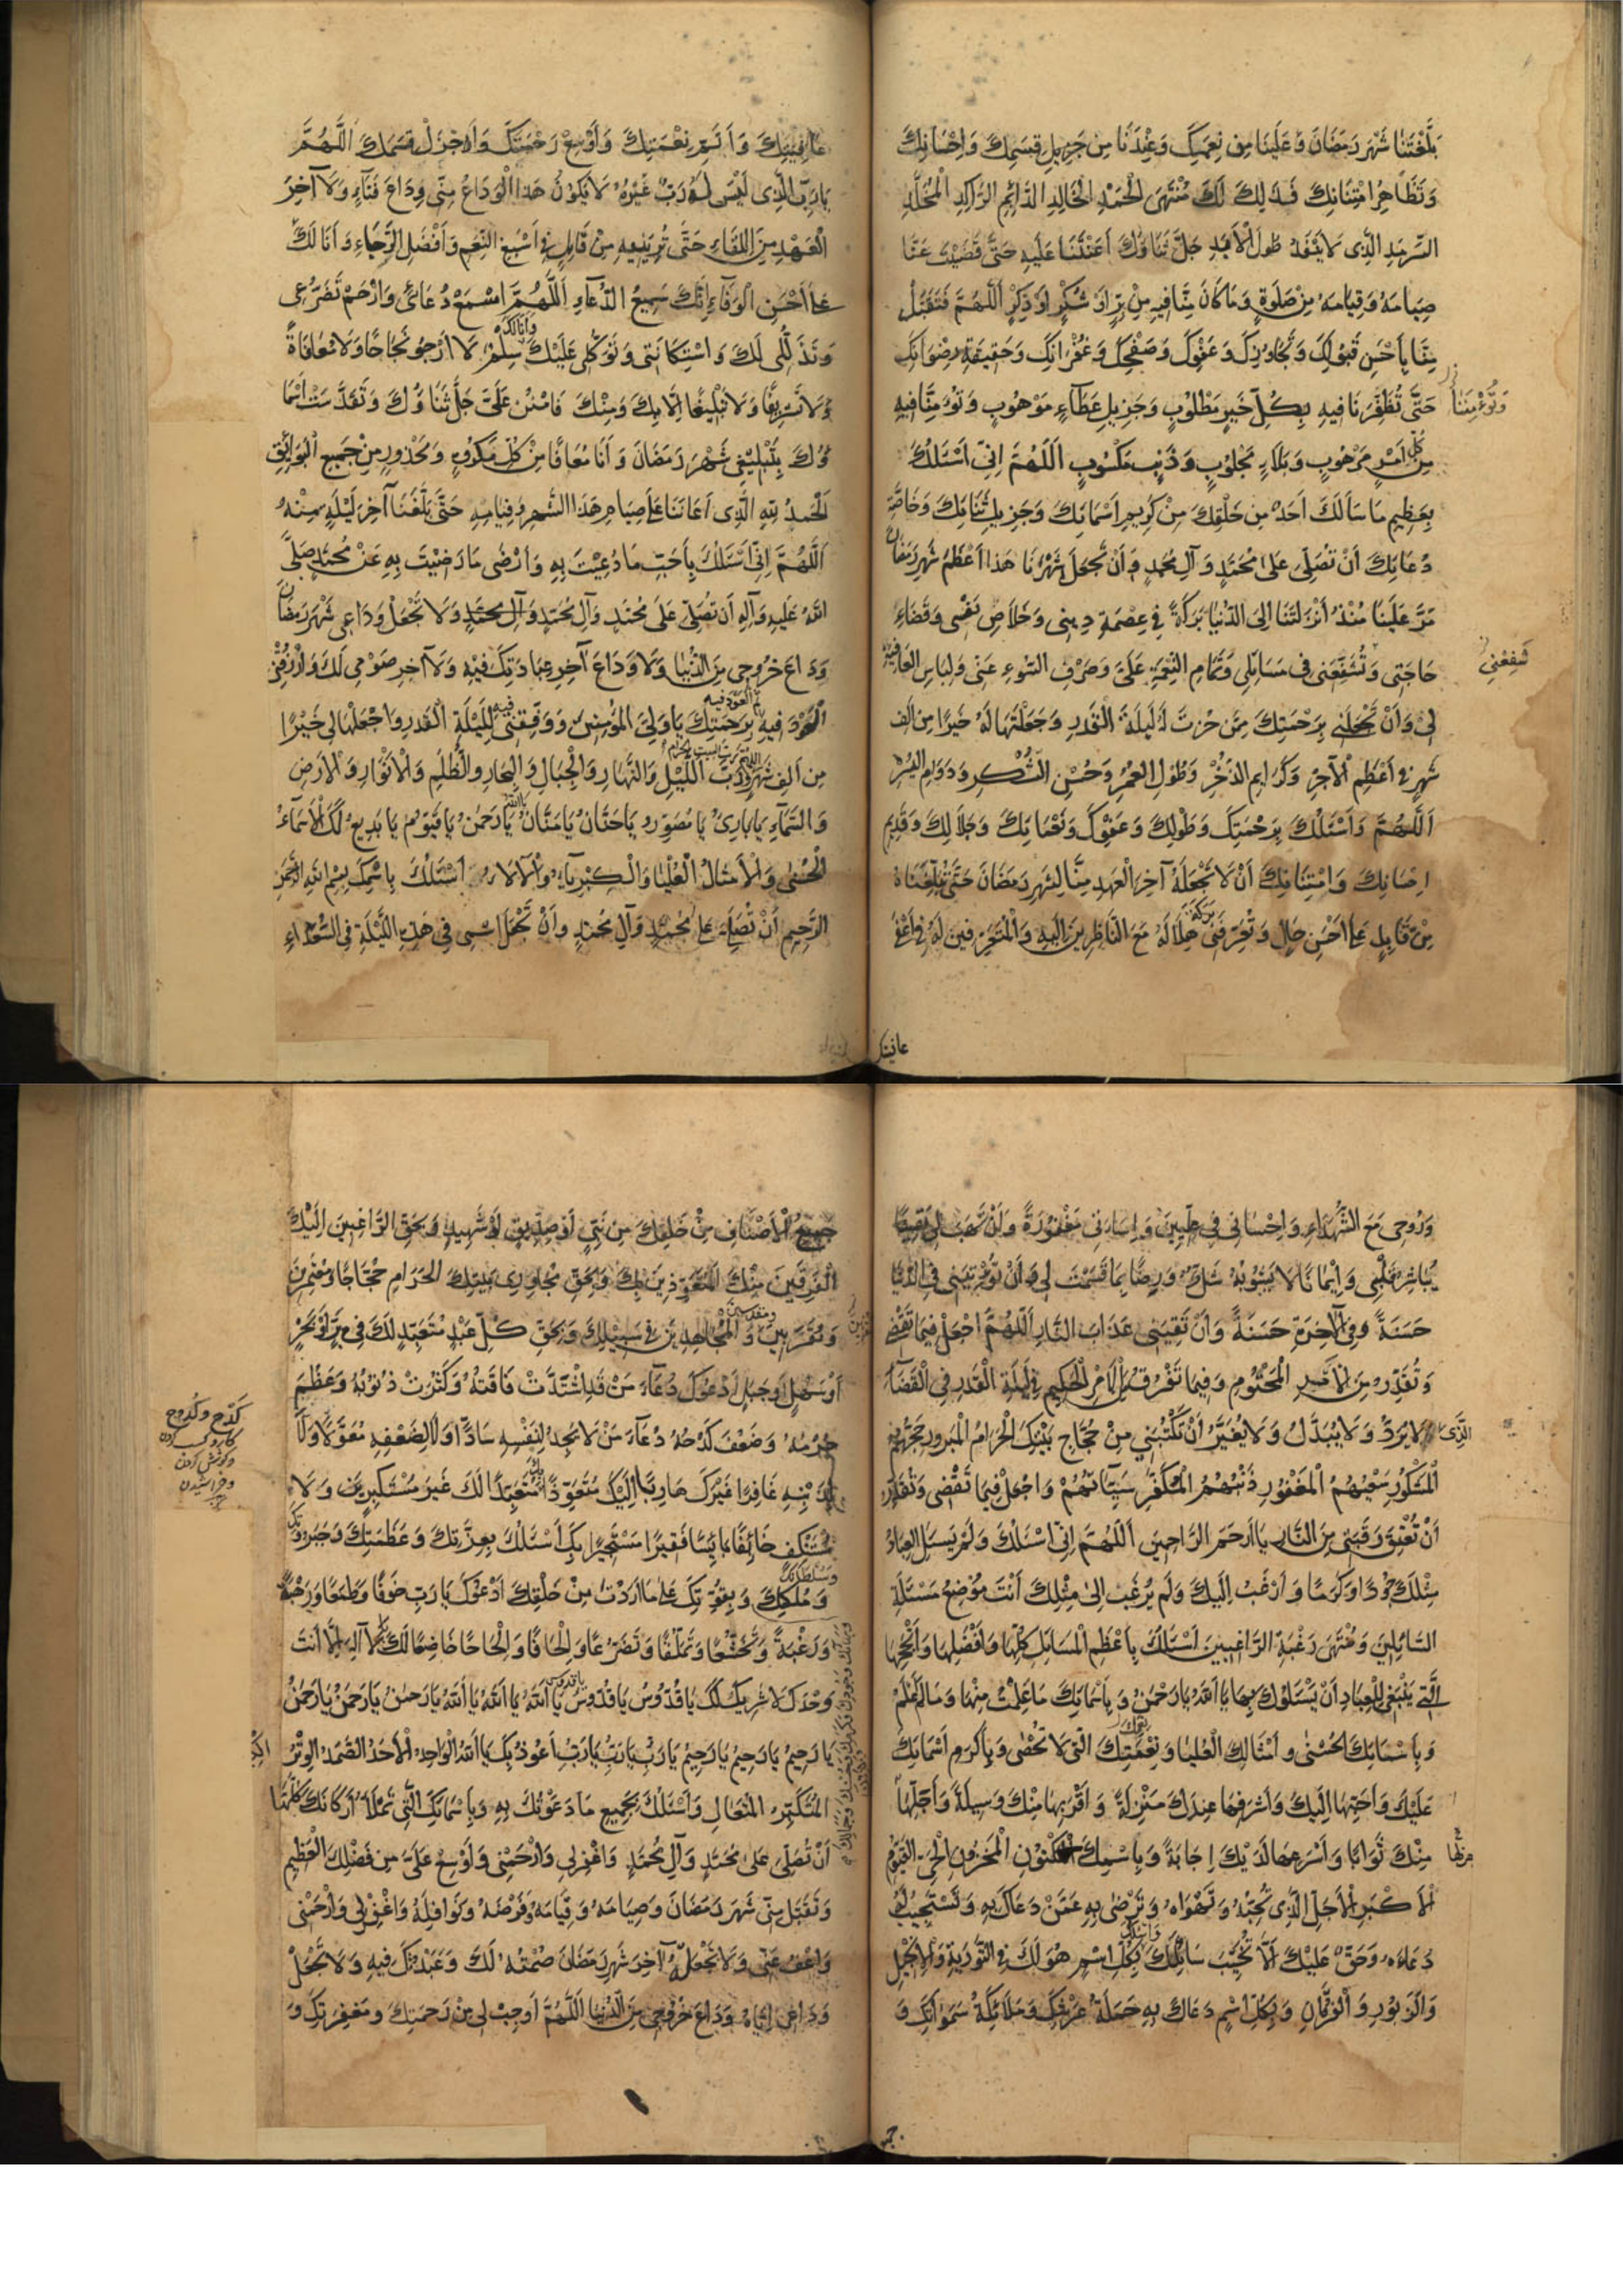 بَلَّغْتَنَا شَهْرَ رَمَضَانَ وَعَلَيْنَا مِنْ نِعَمِكَ وَعِنْدَنَا مِنْ جَزِيلِ قِسَمِكَ وَاِحْسَانِكَ
وَتَظَاهُرِ امْتِنَانِكَ فَذَلِكَ لَكَ مُنْتَهَى الْحَمْدِ الْخَالِدِ الدَّائِمِ الرَّاكِدِ الْمُخَلَّدِ
السَّرْمَدِ الَّذِى لَا يَنْفَدُ طُولَ الْاَبَدِ جَلَّ ثَنَاؤُكَ اَعَنْتَنَا عَلَيْهِ حَتَّى قَضَيْتَ عَنَّا
صِيَامَهُ وَقِيَامَهُ مِنْ صَلَوةٍ وَمَا كَانَ مِنَّا فِيهِ مِنْ بِرٍّ اَوْ شُكْرٍ اَوْ ذِكْرٍ اَللَّهُمَّ فَتَقَبَّلْ
مِنَّا بِاَحْسَنِ قَبُولِكَ وَتَجَاوُزِكَ وَعَفْوِكَ وَصَفْحِكَ وَغُفْرَانِكَ وَحَقِيقَةِ رِضْوَانِكَ
حَتَّى تُظَفِّرَنَا فِيهِ بِكُلِّ خَيْرٍ مَطْلُوبٍ وَجَزِيلِ عَطَآءٍ مَوْهُوبٍ وَتُؤْمِنَنَا فِيهِ
مِنْ كُلِّ اَمْرٍ مَرْهُوبٍ وَبَلَاءٍ مَجْلُوبٍ وَذَنْبٍ مَكْسُوبٍ اَللَّهُمَّ اِنِّى اَسْئَلُكَ
بِعَظِيمِ مَا سَاَلَكَ اَحَدٌ مِنْ خَلْقِكَ مِنْ كَرِيمِ اَسْمَائِكَ وَجَزِيلِ ثَنَائِكَ وَخَاصَّةِ
دُعَائِكَ اَنْ تُصَلِّىَ عَلَى مُحَمَّدٍ وَآلِ مُحَمَّدٍ وَاَنْ تَجْعَلَ شَهْرَنَا هَذَا اَعْظَمَ شَهْرِ رَمَضَانَ
مَرَّ عَلَيْنَا مُنْذُ اَنْزَلْتَنَا اِلَى الدُّنْيَا بَرَكَةً فِى عِصْمَةِ دِينِى وَخَلَاصِ نَفْسِى وَقَضَاءِ
حَاجَتِى وَتُشَفِّعَنِى فِى مَسَائِلِى وَتَمَامِ النِّعْمَةِ عَلَىَّ وَصَرْفِ السُّوءِ عَنِّى وَلِبَاسِ الْعَافِيَةِ
شَفِّعْنِى
لِى وَاَنْ تَجْعَلَنِى بِرَحْمَتِكَ مِمَّنْ خِرْتَ لَهُ لَيْلَةَ الْقَدْرِ وَجَعَلْتَهَا لَهُ خَيْرًا مِنْ اَلْفِ
شَهْرٍ فِى اَعْظَمِ الْاَجْرِ وَكَرَائِمِ الذُّخْرِ وَطُولِ الْعُمْرِ وَحُسْنِ الشُّكْرِ وَدَوَامِ الْيُسْرِ
اَللَّهُمَّ وَاَسْئَلُكَ بِرَحْمَتِكَ وَطَوْلِكَ وَعَفْوِكَ وَنَعْمَائِكَ وَجَلَالِكَ وَقَدِيمِ
اِحْسَانِكَ وَامْتِنَانِكَ اَنْ لَا تَجْعَلَهُ آخِرَ الْعَهْدِ مِنَّا لِشَهْرِ رَمَضَانَ حَتَّى تُبَلِّغَنَاهُ
مِنْ قَابِلٍ عَلَى اَحْسَنِ حَالٍ وَتُعَرِّفَنِى هِلَالَهُ مَعَ النَّاظِرِينَ اِلَيْهِ وَالْمُتَعَرِّفِينَ لَهُ فِى اَعْفَى
عافيتك
عَافِيَتِكَ وَاَتَمِّ نِعْمَتِكَ وَاَوْسَعِ رَحْمَتِكَ وَاَجْزَلِ قِسَمِكَ اَللَّهُمَّ
يَا رَبِّىَ الَّذِى لَيْسَ لِى رَبٌّ غَيْرُهُ لَا يَكُونُ هَذَا الْوَدَاعُ مِنِّى وِدَاعَ فَنَآءٍ وَلَا آخِرَ
الْعَهْدِ مِنَ اللِّقَاءِ حَتَّى تُرِيَنِيهِ مِنْ قَابِلٍ فِى اَسْبَغِ النِّعَمِ وَاَفْضَلِ الرَّجَاءِ وَاَنَا لَكَ
عَلَى اَحْسَنِ الْوَفَآءِ اِنَّكَ سَمِيعُ الدُّعَآءِ اَللَّهُمَّ اسْمَعْ دُعَائِى وَارْحَمْ تَضَرُّعِى
وَتَذَلُّلِى لَكَ وَاسْتِكَانَتِى وَتَوَكُّلِى عَلَيْكَ وَاَنَا لَكَ سِلْمٌ لَا اَرْجُو نَجَاحًا وَلَا مُعَافَاةً
وَلَا تَشْرِيفًا وَلَا تَبْلِيغًا اِلَّا بِكَ وَمِنْكَ فَامْنُنْ عَلَىَّ جَلَّ ثَنَاؤُكَ وَتَقَدَّسَتْ اَسْمَا
ؤُكَ بِتَبْلِيغِى شَهْرَ رَمَضَانَ وَاَنَا مُعَافًا مِنْ كُلِّ مَكْرُوهٍ وَمَحْذُورٍ مِنْ جَمِيعِ الْبَوَائِقِ
اَلْحَمْدُ لِلَّهِ الَّذِى اَعَانَنَا عَلَى صِيَامِ هَذَا الشَّهْرِ وَقِيَامِهِ حَتَّى بَلَّغَنَا آخِرَ لَيْلَةٍ مِنْهُ
اَللَّهُمَّ اِنِّى اَسْئَلُكَ بِاَحَبِّ مَا دُعِيتَ بِهِ وَاَرْضَى مَا رَضِيتَ بِهِ عَنْ مُحَمَّدٍ صَلَّى
اللَّهُ عَلَيْهِ وَآلِهِ اَنْ تُصَلِّىَ عَلَى مُحَمَّدٍ وَآلِ مُحَمَّدٍ وَآلِ مُحَمَّدٍ وَلَا تَجْعَلْ وَدَاعِى شَهْرَ رَمَضَانَ
وَدَاعَ خُرُوجِى مِنَ الدُّنْيَا وَلَا وَدَاعَ آخِرِ عِبَادَتِكَ فِيهِ وَلَا آخِرَ صَوْمِى لَكَ وَارْزُقْنِى
الْعَوْدَ فِيهِ بِرَحْمَتِكَ يَا وَلِىَّ الْمُؤْمِنِينَ وَوَفِّقْنِى فِيهِ لِلَيْلَةِ الْقَدْرِ وَاجْعَلْهَا لِى خَيْرًا
مِنْ اَلْفِ شَهْرٍ رَبَّ اللَّيْلِ وَالنَّهَارِ وَالْجِبَالِ وَالْبِحَارِ وَالظُّلَمِ وَالْاَنْوَارِ وَالْاَرْضِ
وَالسَّمَآءِ يَا بَارِئُ يَا مُصَوِّرُ يَا حَنَّانُ يَا مَنَّانُ يَا اللَّهُ يَا رَحْمَنُ يَا قَيُّومُ يَا بَدِيعُ لَكَ الْاَسْمَآءُ
الْحُسْنَى وَالْاَمْثَالُ الْعُلْيَا وَالْكِبْرِيَآءُ وَالْآلَاءُ اَسْئَلُكَ بِاسْمِكَ بِسْمِ اللَّهِ الرَّحْمَنِ
الرَّحِيمِ اَنْ تُصَلِّىَ عَلَى مُحَمَّدٍ وَآلِ مُحَمَّدٍ وَاَنْ تَجْعَلَ اسْمِى فِى هَذِهِ اللَّيْلَةِ فِى السُّعَدَاءِ
وَرُوحِى مَعَ الشُّهَدَاءِ وَاِحْسَانِى فِى عِلِّيِّينَ وَاِسَاءَتِى مَغْفُورَةً وَاَنْ تَهَبَ لِى يَقِينًا
تُبَاشِرُ بِهِ قَلْبِى وَاِيمَانًا لَا يَشُوبُهُ شَكٌّ وَرِضًا بِمَا قَسَمْتَ لِى وَاَنْ تُؤْتِيَنِى فِى الدُّنْيَا
حَسَنَةً وَفِى الْآخِرَةِ حَسَنَةً وَاَنْ تَقِيَنِى عَذَابَ النَّارِ اَللَّهُمَّ اجْعَلْ فِيمَا تَقْضِى
وَتُقَدِّرُ مِنَ الْاَمْرِ الْمَحْتُومِ وَفِيمَا تَفْرُقُ مِنَ الْاَمْرِ الْحَكِيمِ فِى لَيْلَةِ الْقَدْرِ فِى الْقَضَآءِ
الَّذِى لَا يُرَدُّ وَلَا يُبَدَّلُ وَلَا يُغَيَّرُ اَنْ تَكْتُبَنِى مِنْ حُجَّاجِ بَيْتِكَ الْحَرَامِ الْمَبْرُورِ حَجُّهُمُ
الْمَشْكُورِ سَعْيُهُمُ الْمَغْفُورِ ذَنْبُهُمُ الْمُكَفَّرِ سَيِّئَاتُهُمْ وَاجْعَلْ فِيمَا تَقْضِى وَتُقَدِّرُ
اَنْ تُعْتِقَ رَقَبَتِى مِنَ النَّارِ يَا اَرْحَمَ الرَّاحِمِينَ اَللَّهُمَّ اِنِّى اَسْئَلُكَ وَلَمْ يَسْئَلِ الْعِبَادُ
مِثْلَكَ جُودًا وَكَرَمًا وَاَرْغَبُ اِلَيْكَ وَلَمْ يُرْغَبْ اِلَى مِثْلِكَ اَنْتَ مَوْضِعُ مَسْئَلَةِ
السَّائِلِينَ وَمُنْتَهَى رَغْبَةِ الرَّاغِبِينَ اَسْئَلُكَ بِاَعْظَمِ الْمَسَائِلِ كُلِّهَا وَاَفْضَلِهَا وَاَنْجَحِهَا
الَّتِى يَنْبَغِى لِلْعِبَادِ اَنْ يَسْئَلُوكَ بِهَا يَا اَللَّهُ يَا رَحْمَنُ وَبِاَسْمَائِكَ مَا عَلِمْتُ مِنْهَا وَمَا لَمْ اَعْلَمْ
وَبِاَسْمَائِكَ الْحُسْنَى وَاَمْثَالِكَ الْعُلْيَا وَنِعْمَتِكَ الَّتِى لَا تُحْصَى وَبِاَكْرَمِ اَسْمَائِكَ
عَلَيْكَ وَاَحَبِّهَا اِلَيْكَ وَاَشْرَفِهَا عِنْدَكَ مَنْزِلَةً وَاَقْرَبِهَا مِنْكَ وَسِيلَةً وَاَجْزَلِهَا
مِنْكَ ثَوَابًا وَاَسْرَعِهَا لَدَيْكَ اِجَابَةً وَبِاسْمِكَ الْمَكْنُونِ الْمَخْزُونِ الْحَىِّ الْقَيُّومِ
الْاَكْبَرِ الْاَجَلِّ الَّذِى تُحِبُّهُ وَتَهْوَاهُ وَتَرْضَى بِهِ عَمَّنْ دَعَاكَ بِهِ وَتَسْتَجِيبُ لَهُ
دُعَاءَهُ وَحَقٌّ عَلَيْكَ اَلَّا تُخَيِّبَ سَائِلَكَ وَاَسْئَلُكَ بِكُلِّ اسْمٍ هُوَ لَكَ فِى التَّوْرَيةِ وَالْاِنْجِيلِ
وَالزَّبُورِ وَالْفُرْقَانِ وَبِكُلِّ اسْمٍ دَعَاكَ بِهِ حَمَلَةُ عَرْشِكَ وَمَلَائِكَةُ سَمَوَاتِكَ وَ
جَمِيعُ الْاَصْنَافِ مِنْ خَلْقِكَ مِنْ نَبِىٍّ اَوْ صِدِّيقٍ اَوْ شَهِيدٍ وَبِحَقِّ الرَّاغِبِينَ اِلَيْكَ
الْفَرِقِينَ مِنْكَ الْمُتَعَوِّذِينَ بِكَ وَبِحَقِّ مُجَاوِرِى بَيْتِكَ الْحَرَامِ حُجَّاجًا وَمُعْتَمِرِينَ
وَمُقَدِّسِينَ وَالْمُجَاهِدِينَ فِى سَبِيلِكَ وَبِحَقِّ كُلِّ عَبْدٍ مُتَعَبِّدٍ لَكَ فِى بَرٍّ اَوْ بَحْرٍ
اَوْ سَهْلٍ اَوْ جَبَلٍ اَدْعُوكَ دُعَآءَ مَنْ قَدِ اشْتَدَّتْ فَاقَتُهُ وَكَثُرَتْ ذُنُوبُهُ وَعَظُمَ
جُرْمُهُ وَضَعُفَ كَدْحُهُ دُعَآءَ مَنْ لَا يَجِدُ لِنَفْسِهِ سَادًّا وَلَا لِضَعْفِهِ مُقَوِّيًا وَلَا
لِذَنْبِهِ غَافِرًا غَيْرَكَ هَارِبًا اِلَيْكَ مُتَعَوِّذًا بِكَ مُتَعَبِّدًا لَكَ غَيْرَ مُسْتَكْبِرٍ وَلَا
مُسْتَنْكِفٍ خَائِفًا بَائِسًا فَقِيرًا مُسْتَجِيرًا بِكَ اَسْئَلُكَ بِعِزَّتِكَ وَعَظَمَتِكَ وَجَبَرُوتِكَ
وَسُلْطَانِكَ وَمُلْكِكَ وَبِقُوَّتِكَ عَلَى مَا اَرَدْتَ مِنْ خَلْقِكَ اَدْعُوكَ يَا رَبِّ خَوْفًا وَطَمَعًا وَرَهْبَةً
وَرَغْبَةً وَتَخَشُّعًا وَتَمَلُّقًا وَتَضَرُّعًا وَاِلْحَافًا وَاِلْحَاحًا خَاضِعًا لَكَ لَا اِلَهَ اِلَّا اَنْتَ
وَحْدَكَ لَا شَرِيكَ لَكَ يَا قُدُّوسُ يَا قُدُّوسُ يَا قُدُّوسُ يَا اَللَّهُ يَا اَللَّهُ يَا اَللَّهُ يَا رَحْمَنُ يَا رَحْمَنُ يَا رَحْمَنُ
يَا رَحِيمُ يَا رَحِيمُ يَا رَحِيمُ يَا رَبِّ يَا رَبِّ يَا رَبِّ اَعُوذُ بِكَ يَا اَللَّهُ الْوَاحِدُ الْاَحَدُ الصَّمَدُ الْوِتْرُ
الْمُتَكَبِّرُ الْمُتَعَالِ وَاَسْئَلُكَ بِجَمِيعِ مَا دَعَوْتُكَ بِهِ وَبِاَسْمَائِكَ الَّتِى تَمْلَأُ اَرْكَانَكَ كُلَّهَا
اَنْ تُصَلِّىَ عَلَى مُحَمَّدٍ وَآلِ مُحَمَّدٍ وَاغْفِرْ لِى وَارْحَمْنِى وَاَوْسِعْ عَلَىَّ مِنْ فَضْلِكَ الْعَظِيمِ
وَتَقَبَّلْ مِنِّى شَهْرَ رَمَضَانَ وَصِيَامَهُ وَقِيَامَهُ وَفَرْضَهُ وَنَوَافِلَهُ وَاغْفِرْ لِى وَارْحَمْنِى
وَاعْفُ عَنِّى وَلَا تَجْعَلْهُ آخِرَ شَهْرِ رَمَضَانَ صُمْتُهُ لَكَ وَعَبَدْتُكَ فِيهِ وَلَا تَجْعَلْ
وَدَاعِى اِيَّاهُ وَدَاعَ خُرُوجِى مِنَ الدُّنْيَا اَللَّهُمَّ اَوْجِبْ لِى مِنْ رَحْمَتِكَ وَمَغْفِرَتِكَ وَ